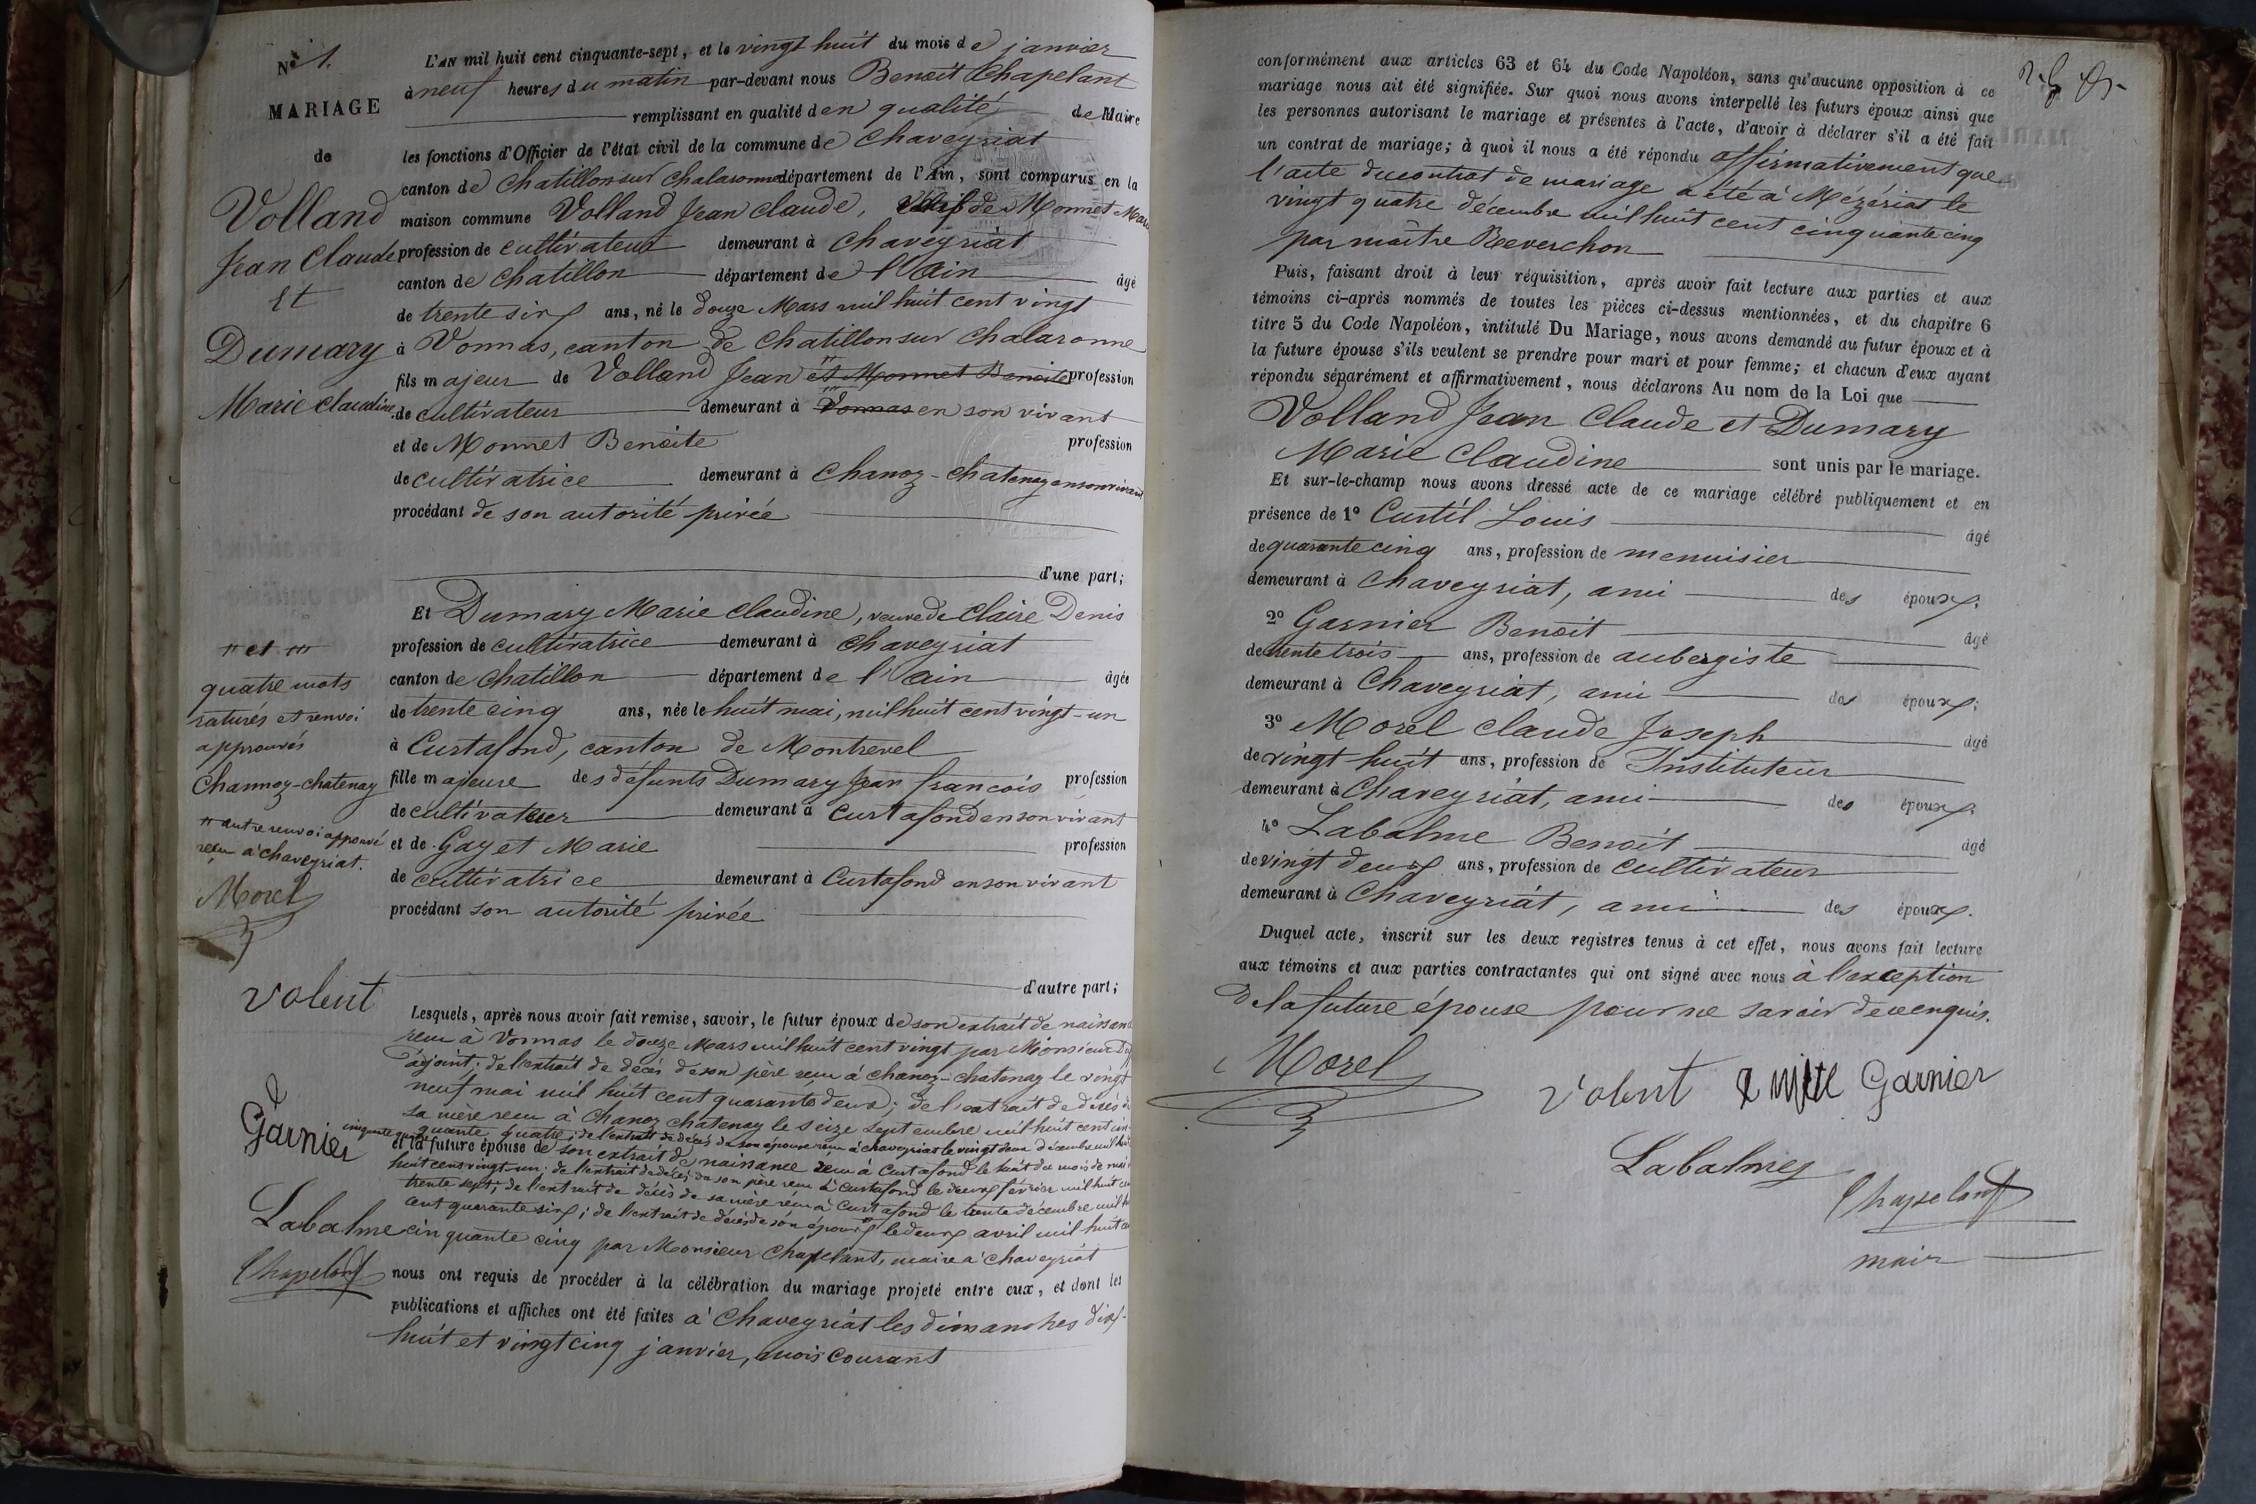 N° 1.
MARIAGE
de
Volland
Jean Claude
Et
Dumary
Marie Claudine
L'AN mil huit cent cinquante-sept, et le vingt huit du mois de janvier
à neuf heures du matin par-devant nous Benoit Chapelant
remplissant en qualité d en qualité de Maire
les fonctions d'Officier de l'état civil de la commune de Chaveyriat
canton de Chatillon sur Chalaronne département de l'Ain, sont comparus en la
maison commune Volland Jean Claude, veuf de Monnet Marie
profession de cultivateur demeurant à Chaveyriat
canton de Chatillon département de l'Ain âgé
de trente six ans, né le douze Mars mil huit cent vingt
à Vonnas, canton de Chatillon sur Chalaronne
fils majeur de Volland Jean et Monnet Benoite profession
de cultivateur demeurant à Vonnas en son vivant
et de Monnet Benoite profession
de cultivatrice demeurant à Chanoz-Chatenay en son vivant
procédant de son autorité privée
d'une part;
Et Dumary Marie Claudine, veuve de Claire Denis
profession de cultivatrice demeurant à Chaveyriat
canton de Chatillon département de l'Ain âgée
de trente cinq ans, née le huit mai, mil huit cent vingt-un
à Curtafond, canton de Montrevel
fille majeure des défunts Dumary Jean François profession
de cultivateur demeurant à Curtafond en son vivant
et de Gayet Marie profession
de cultivatrice demeurant à Curtafond en son vivant
procédant son autorité privée
d'autre part;
"et"
quatre mots
raturés et renvoi
approuvés
Channoz-Chatenay
" autre renvoi approuvé
reçu à Chaveyriat.
Morel
Volent
Garnier
Labalme
Chapelant
Lesquels, après nous avoir fait remise, savoir, le futur époux de son extrait de naissance
reçu à Vonnas le douze Mars mil huit cent vingt par Monsieur
adjoint; de l'extrait de décès de son père reçu à Chanoz-Chatenay le vingt
neuf mai mil huit cent quarante deux; de l'extrait de décès de
sa mère reçu à Chanoz Chatenay le seize septembre mil huit cent cin-
quante quatre; de l'extrait de décès de son épouse reçu à Chaveyriat le vingt deux décembre mil huit
cinquante quatre
et la future épouse de son extrait de naissance reçu à Curtafond le huit du mois de mai
huit cent vingt-un; de l'extrait de décès de son père reçu à Curtafond le deux février mil huit cent
trente sept; de l'extrait de décès de sa mère reçu à Curtafond le trente décembre mil huit
cent quarante six; de l'extrait de décès de son époux " le deux avril mil huit cent
cinquante cinq par Monsieur Chapelant, maire à Chaveyriat
nous ont requis de procéder à la célébration du mariage projeté entre eux, et dont les
publications et affiches ont été faites à Chaveyriat les dimanches dix-
huit et vingt cinq janvier, mois courant
conformément aux articles 63 et 64 du Code Napoléon, sans qu'aucune opposition à ce
mariage nous ait été signifiée. Sur quoi nous avons interpellé les futurs époux ainsi que
les personnes autorisant le mariage et présentes à l'acte, d'avoir à déclarer s'il a été fait
un contrat de mariage; à quoi il nous a été répondu affirmativement que
l'acte du contrat de mariage a été à Mézériat le
vingt quatre décembre mil huit cent cinquante cinq
par maître Reverchon
Puis, faisant droit à leur réquisition, après avoir fait lecture aux parties et aux
témoins ci-après nommés de toutes les pièces ci-dessus mentionnées, et du chapitre 6
titre 5 du Code Napoléon, intitulé Du Mariage, nous avons demandé au futur époux et à
la future épouse s'ils veulent se prendre pour mari et pour femme; et chacun d'eux ayant
répondu séparément et affirmativement, nous déclarons Au nom de la Loi que
Volland Jean Claude et Dumary
Marie Claudine sont unis par le mariage.
Et sur-le-champ nous avons dressé acte de ce mariage célébré publiquement et en
présence de 1° Curtil Louis âgé
de quarante cinq ans, profession de menuisier
demeurant à Chaveyriat, ami des époux;
2° Garnier Benoit âgé
de trente trois ans, profession de aubergiste
demeurant à Chaveyriat, ami des époux;
3° Morel Claude Joseph âgé
de vingt huit ans, profession de Instituteur
demeurant à Chaveyriat, ami des époux;
4° Labalme Benoit âgé
de vingt deux ans, profession de cultivateur
demeurant à Chaveyriat, ami des époux.
Duquel acte, inscrit sur les deux registres tenus à cet effet, nous avons fait lecture
aux témoins et aux parties contractantes qui ont signé avec nous à l'exception
de la future épouse pour ne savoir de ce enquis.
Morel
Volent
Garnier
Labalme
Chapelant
maire